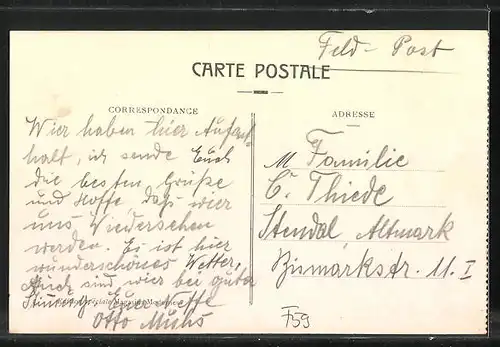 Feld-Post
CARTE POSTALE
CORRESPONDANCE
ADRESSE
Wier haben hier Aufent
halt, ich sende Euch
die besten Grüße
und Hoffe daß wier
uns Wiedersehen
werden. Es ist hier
wunderschönes Wetter,
Auch sind wier bei guter
Stimung. Euer Neffe
Otto Muhs
M Familie
C. Thiede
Stendal Altmark
Bismarkstr. 11. I
F59